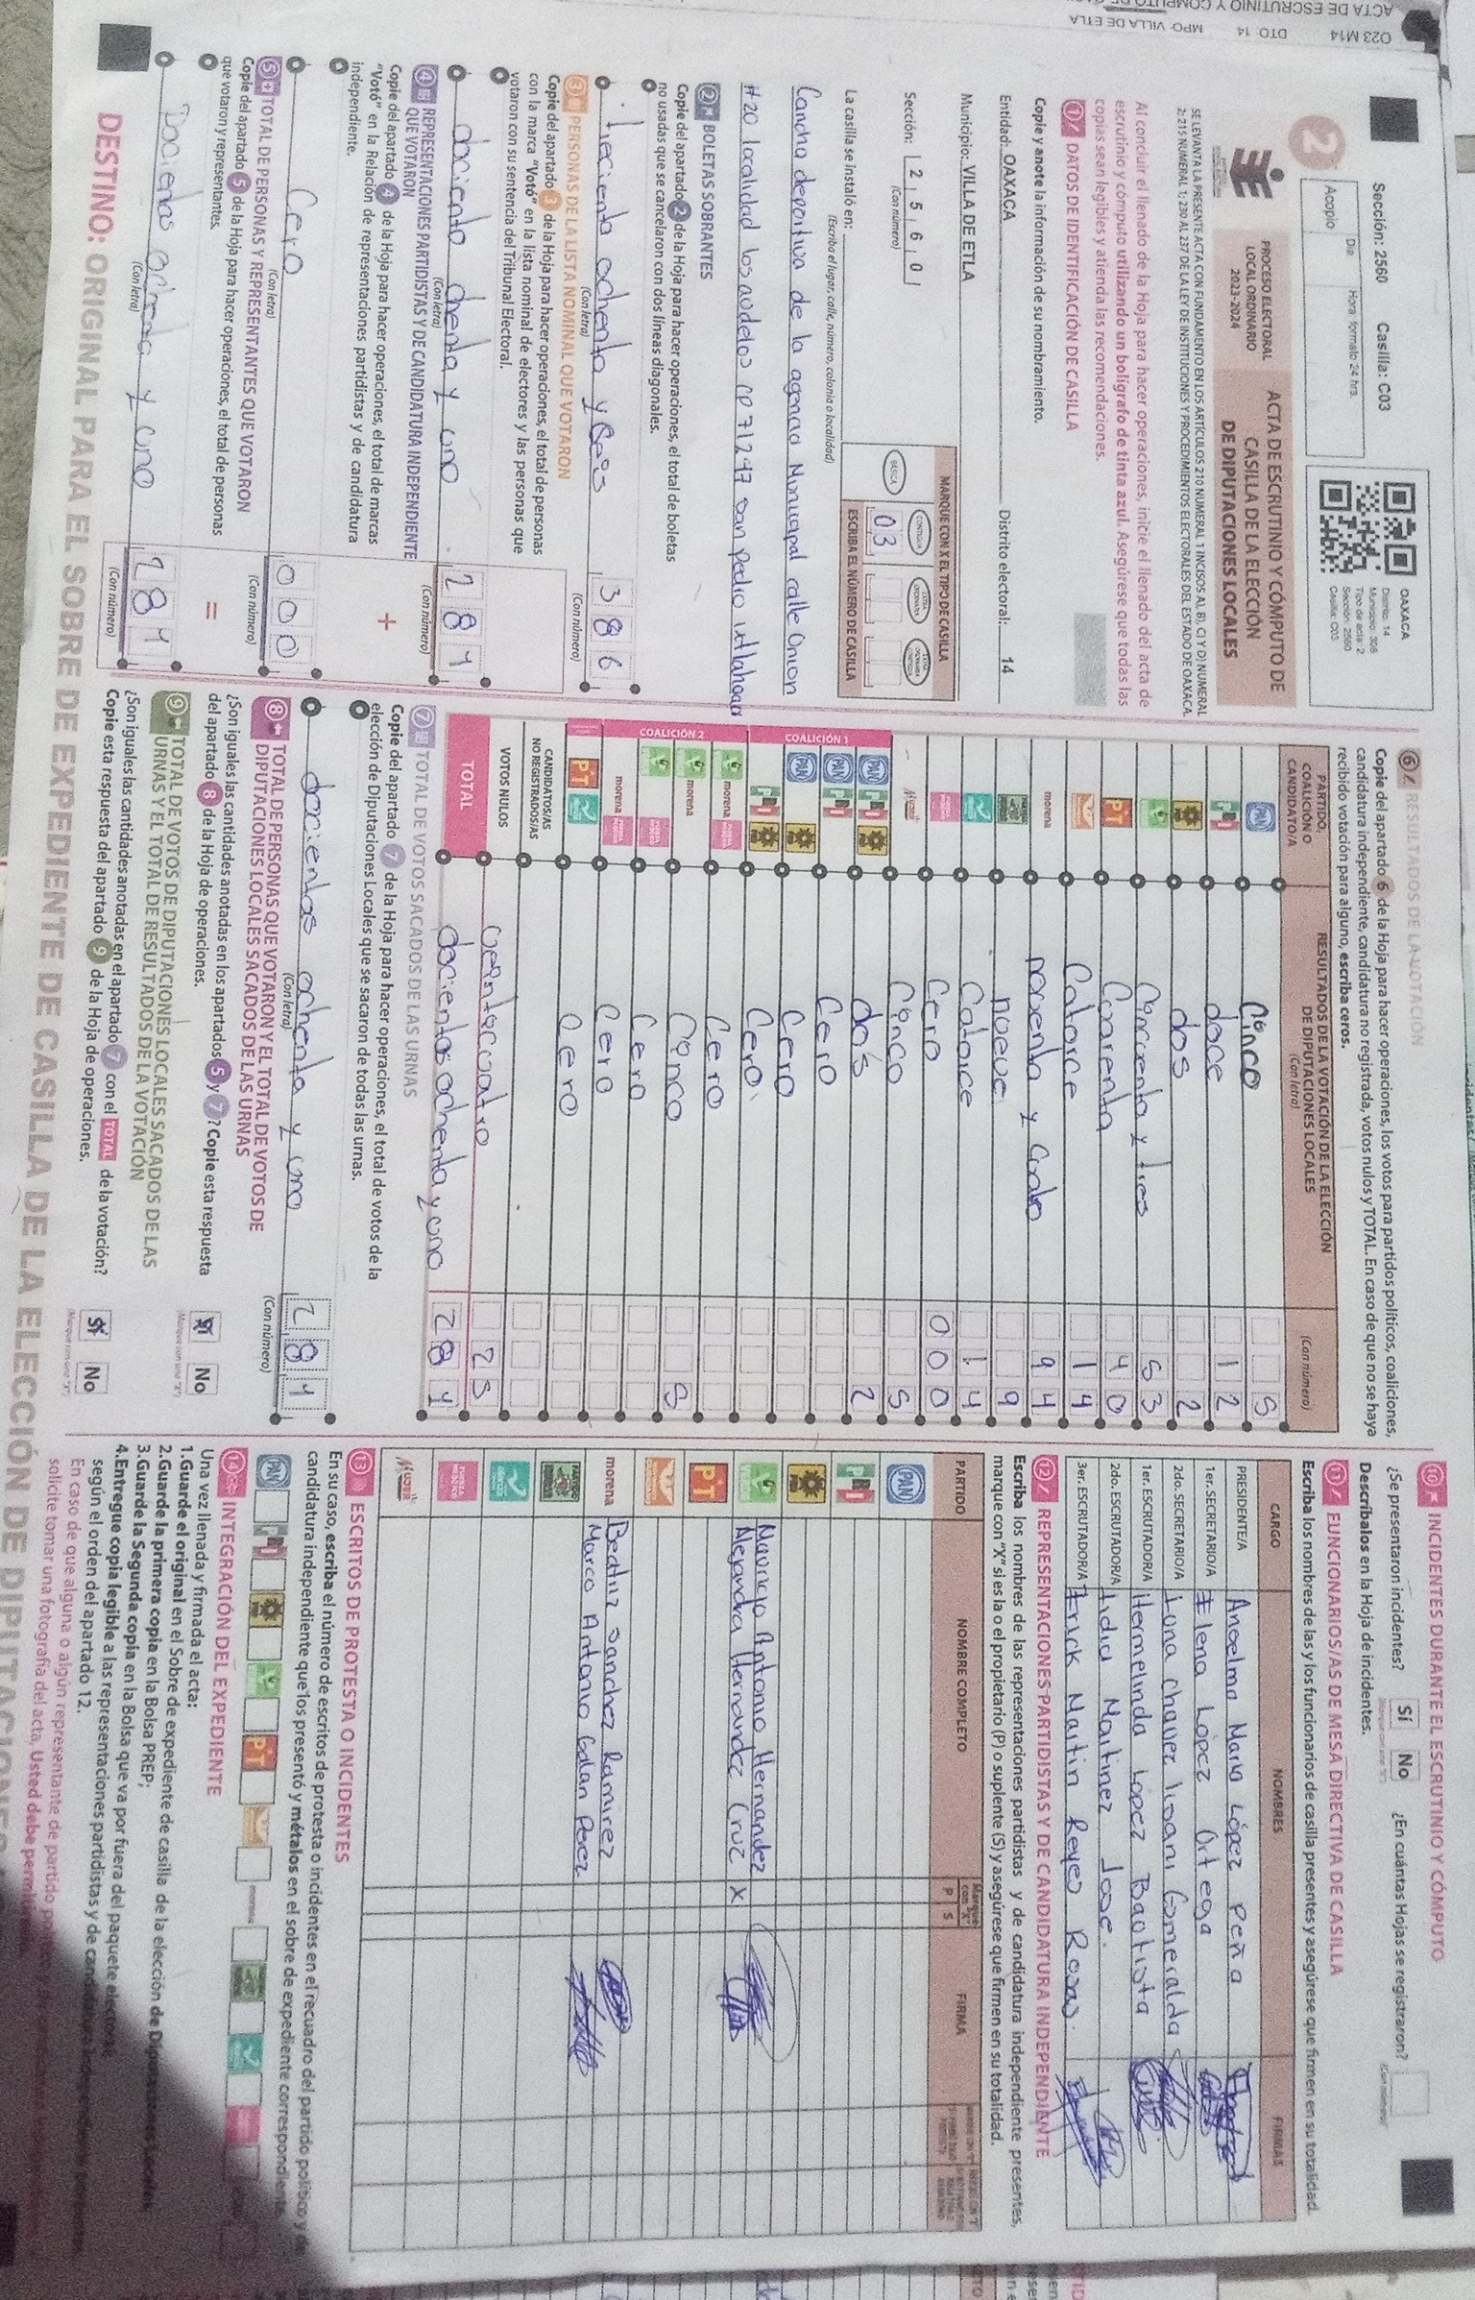 Sección: 2560 Casilla: C03
Acopio
Día
Hora formato 24 hrs.
OAXACA
Distrito: 14
Municipio: 308
Tipo de acta: 2
Sección: 2560
Casilla: C03
2
PROCESO ELECTORAL
LOCAL ORDINARIO
2023-2024
ACTA DE ESCRUTINIO Y CÓMPUTO DE
CASILLA DE LA ELECCIÓN
DE DIPUTACIONES LOCALES
SE LEVANTA LA PRESENTE ACTA CON FUNDAMENTO EN LOS ARTÍCULOS 210 NUMERAL 1 INCISOS A), B), C) Y D) NUMERAL
2; 215 NUMERAL 1; 230 AL 237 DE LA LEY DE INSTITUCIONES Y PROCEDIMIENTOS ELECTORALES DEL ESTADO DE OAXACA.
Al concluir el llenado de la Hoja para hacer operaciones, inicie el llenado del acta de
escrutinio y cómputo utilizando un bolígrafo de tinta azul. Asegúrese que todas las
copias sean legibles y atienda las recomendaciones.
1 DATOS DE IDENTIFICACIÓN DE CASILLA
Copie y anote la información de su nombramiento.
Entidad: OAXACA Distrito electoral: 14
Municipio: VILLA DE ETLA
Sección: 2 5 6 0
(Con número)
MARQUE CON X EL TIPO DE CASILLA
BÁSICA
CONTIGUA
03
ESCRIBA EL NÚMERO DE CASILLA
La casilla se instaló en:
(Escriba el lugar, calle, número, colonia o localidad)
Cancha deportiva de la agencia Municipal calle Union
#20 localidad los audelos cp 71247 san pedro ixtlahuaca
2 BOLETAS SOBRANTES
Copie del apartado 2 de la Hoja para hacer operaciones, el total de boletas
no usadas que se cancelaron con dos líneas diagonales.
Treciento ochenta y seis
(Con letra)
3 8 6
(Con número)
3 PERSONAS DE LA LISTA NOMINAL QUE VOTARON
Copie del apartado 3 de la Hoja para hacer operaciones, el total de personas
con la marca “Votó” en la lista nominal de electores y las personas que
votaron con su sentencia del Tribunal Electoral.
dociento chenta y uno
(Con letra)
2 8 1
(Con número)
4 REPRESENTACIONES PARTIDISTAS Y DE CANDIDATURA INDEPENDIENTE
QUE VOTARON
Copie del apartado 4 de la Hoja para hacer operaciones, el total de marcas
“Votó” en la Relación de representaciones partidistas y de candidatura
independiente.
+
Cero
(Con letra)
0 0 0
(Con número)
5 TOTAL DE PERSONAS Y REPRESENTANTES QUE VOTARON
Copie del apartado 5 de la Hoja para hacer operaciones, el total de personas
que votaron y representantes.
=
Docientas ochenta y uno
(Con letra)
2 8 1
(Con número)
6 RESULTADOS DE LA VOTACIÓN
Copie del apartado 6 de la Hoja para hacer operaciones, los votos para partidos políticos, coaliciones,
candidatura independiente, candidatura no registrada, votos nulos y TOTAL. En caso de que no se haya
recibido votación para alguno, escriba ceros.
PARTIDO, COALICIÓN O CANDIDATO/A
RESULTADOS DE LA VOTACIÓN DE LA ELECCIÓN DE DIPUTACIONES LOCALES
(Con letra)
(Con número)
PAN Cinco 5
PRI doce 1 2
dos 2
Cincuenta y tres 5 3
PT Cuarenta 4 0
Catorce 1 4
morena noventa y cuatro 9 4
nueve 9
Catorce 1 4
Cero 0 0 0
MUJER Cinco 5
COALICIÓN 1
PAN PRI dos 2
PAN PRI Cero
PAN Cero
PRI Cero
COALICIÓN 2
morena Cero
morena Cinco 5
Cero
morena Cero
PT Cero
CANDIDATOS/AS
NO REGISTRADOS/AS
VOTOS NULOS Veinticuatro 2 5
TOTAL docientos ochenta y uno 2 8 1
7 TOTAL DE VOTOS SACADOS DE LAS URNAS
Copie del apartado 7 de la Hoja para hacer operaciones, el total de votos de la
elección de Diputaciones Locales que se sacaron de todas las urnas.
docientas ochenta y uno
(Con letra)
2 8 1
(Con número)
8 TOTAL DE PERSONAS QUE VOTARON Y EL TOTAL DE VOTOS DE
DIPUTACIONES LOCALES SACADOS DE LAS URNAS
¿Son iguales las cantidades anotadas en los apartados 5 y 7? Copie esta respuesta
del apartado 8 de la Hoja de operaciones.
Sí No
9 TOTAL DE VOTOS DE DIPUTACIONES LOCALES SACADOS DE LAS
URNAS Y EL TOTAL DE RESULTADOS DE LA VOTACIÓN
¿Son iguales las cantidades anotadas en el apartado 7 con el TOTAL de la votación?
Copie esta respuesta del apartado 9 de la Hoja de operaciones.
Sí No
10 INCIDENTES DURANTE EL ESCRUTINIO Y CÓMPUTO
¿Se presentaron incidentes? Sí No ¿En cuántas Hojas se registraron?
Descríbalos en la Hoja de incidentes.
11 FUNCIONARIOS/AS DE MESA DIRECTIVA DE CASILLA
Escriba los nombres de las y los funcionarios de casilla presentes y asegúrese que firmen en su totalidad.
CARGO NOMBRES FIRMAS
PRESIDENTE/A Anselma María López Peña
1er. SECRETARIO/A Elena López Ortega
2do. SECRETARIO/A Luna Chavez Lioani Esmeralda
1er. ESCRUTADOR/A Hermelinda Lopez Bautista
2do. ESCRUTADOR/A Lidia Martinez Jose.
3er. ESCRUTADOR/A Erick Martin Reyes Rosas.
12 REPRESENTACIONES PARTIDISTAS Y DE CANDIDATURA INDEPENDIENTE
Escriba los nombres de las representaciones partidistas y de candidatura independiente presentes,
marque con “X” si es la o el propietario (P) o suplente (S) y asegúrese que firmen en su totalidad.
PARTIDO NOMBRE COMPLETO Marque con "X" P S FIRMA
PAN
PRI
Mauricio Antonio Hernandez
Alejandra Hernandez Cruz X
PT
morena Beatriz Sanchez Ramirez
Marco Antonio Galan Perez
MUJER
13 ESCRITOS DE PROTESTA O INCIDENTES
En su caso, escriba el número de escritos de protesta o incidentes en el recuadro del partido político y de
candidatura independiente que los presentó y métalos en el sobre de expediente correspondiente.
PAN PRI PT morena
14 INTEGRACIÓN DEL EXPEDIENTE
Una vez llenada y firmada el acta:
1.Guarde el original en el Sobre de expediente de casilla de la elección de Diputaciones Locales
2.Guarde la primera copia en la Bolsa PREP;
3.Guarde la Segunda copia en la Bolsa que va por fuera del paquete electoral
4.Entregue copia legible a las representaciones partidistas y de candidatura
según el orden del apartado 12.
En caso de que alguna o algún representante de partido
solicite tomar una fotografía del acta, Usted debe
DESTINO: ORIGINAL PARA EL SOBRE DE EXPEDIENTE DE CASILLA DE LA ELECCIÓN DE DIPUTACIONES
O23 M14 DTO 14 MPO- VILLA DE ETLA
ACTA DE ESCRUTINIO Y CÓMPUTO